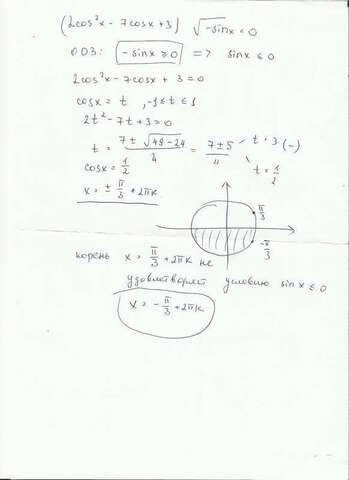 (2cos²x - 7cosx + 3) √-sinx = 0
ОДЗ: -sinx ≥ 0 => sinx ≤ 0
2cos²x - 7cosx + 3 = 0
cosx = t , -1 ≤ t ≤ 1
2t² - 7t + 3 = 0
t = (7 ± √49-24)/4 = (7 ± 5)/4 t = 3 (-)
t = 1/2
cosx = 1/2
x = ± π/3 + 2πk
π/3
-π/3
корень x = π/3 + 2πk не
удовлетворяет условию sinx ≤ 0
x = - π/3 + 2πk